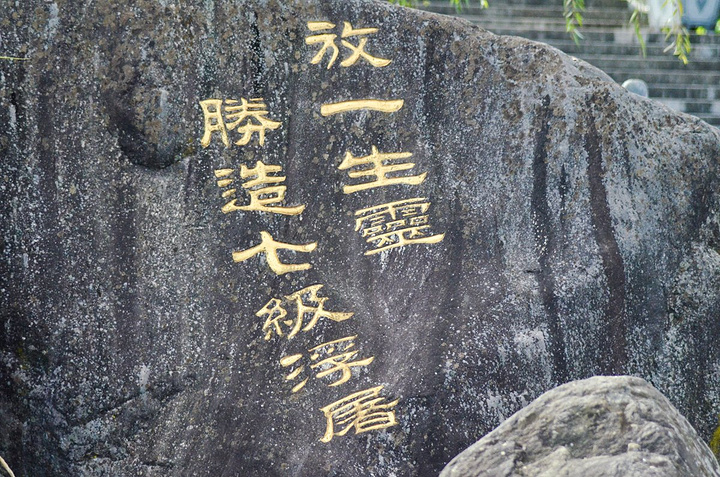 放一生靈
勝造七級浮屠